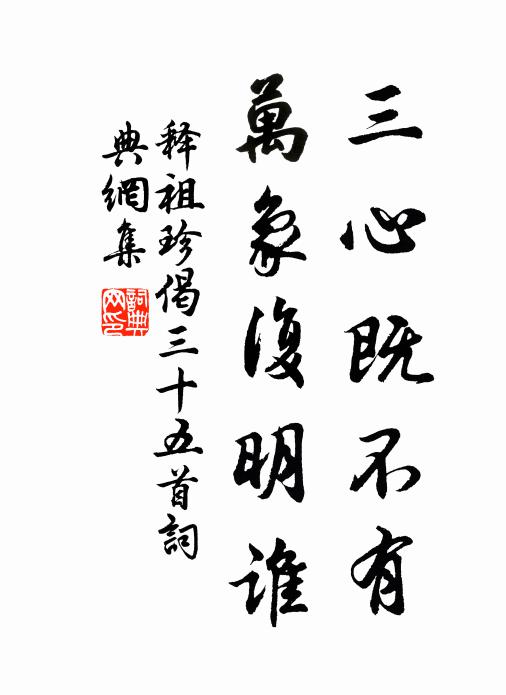 三心既不有
萬象復明誰
释祖珍偈三十五首詞
典網集
詞典網印